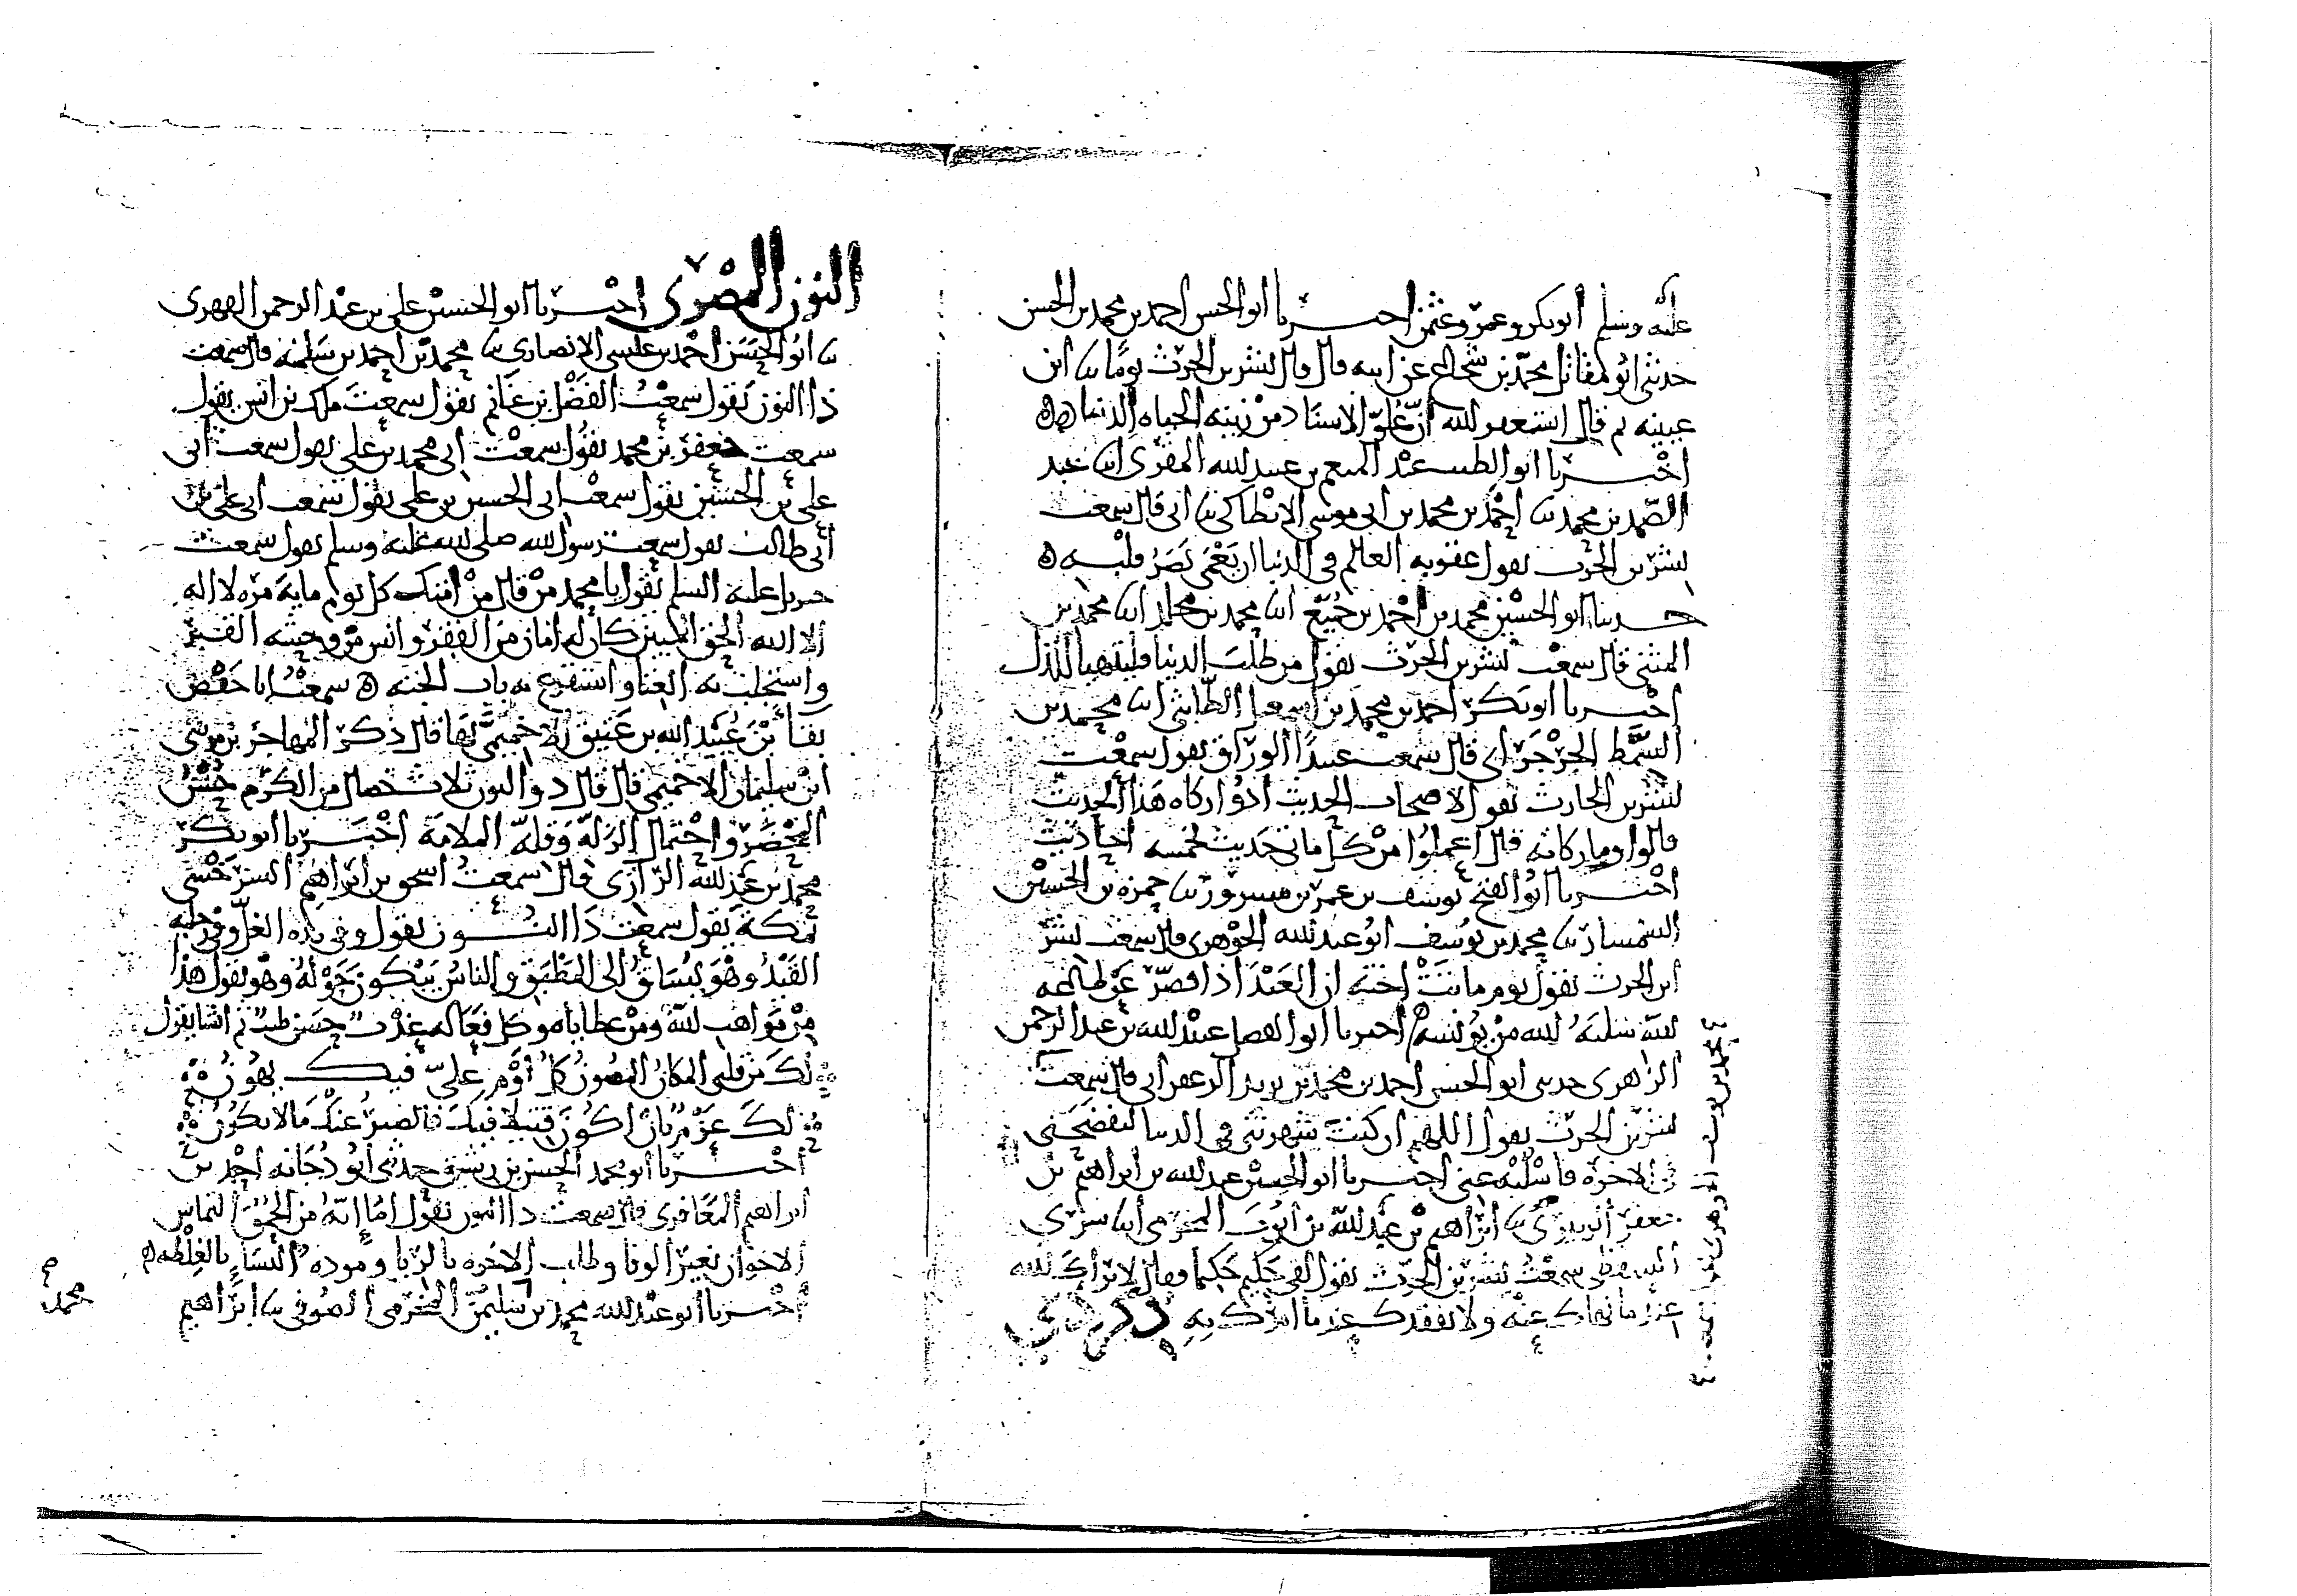 عليه وسلم أبو بكر وعمر وعثمن أخبرنا أبو الحسن أحمد بن محمد بن الحسن
حدثني أبو مقاتل محمد بن شجاع عن أبيه قال قال لنا بشر بن الحرث يوما ابن
عيينه ثم قال استغفر الله أن علو الإسناد من زينة الحياه الدنيا ه
أخبرنا أبو الطيب عبد المنعم بن عبيد الله المقرئ أنا عبد
الصمد بن محمد ثنا أحمد بن محمد بن أبي موسى الانطاكي ثنا أبي قال سمعت
بشر بن الحرث يقول عقوبه العالم في الدنيا ان يعمى بصر قلبه ه
حدثنا أبو الحسين محمد بن أحمد بن جميع أنا محمد بن مخلد أنا محمد بن
المثنى قال سمعت بشر بن الحرث يقول من طلب الدنيا فليتهيأ للذل
أخبرنا أبو بكر أحمد بن محمد بن إسمعيل الطابثي أنا محمد بن
السمط الجرجرائي قال سمعت عبيدا الوراق يقول سمعت
بشر بن الحارث يقول لأصحاب الحديث أدوا زكاه هذا الحديث
قالوا وما زكاته قال اعملوا من كل مائتي حديث بخمسه أحاديث
أخبرنا أبو الفتح يوسف بن عمر بن مسرور ثنا حمزه بن الحسين
السمسار ثنا محمد بن يوسف أبو عبد الله الجوهري قال سمعت بشر
ابن الحرث يقول يوم ماتت أخته ان العبد اذا قصر عن طاعه
الله سلبه الله من يؤنسه ه أخبرنا أبو الفضل عبيد الله بن عبد الرحمن
الزاهري حدثني أبو الحسن أحمد بن محمد بن يزيد الزعفراني قال سمعت
بشر بن الحرث يقول اللهم ان كنت شهرتني في الدنيا لتفضحني
في الاخره فاسلبه عني أخبرنا أبو الحسين عبد الله بن ابراهيم بن
جعفر الزبيبي ثنا ابراهيم بن عبد الله بن أيوب المخرمي أنا سري
السقطي سمعت بشر بن الحرث يقول لقي حكيم حكيما فقال لا يراك الله
عند ما نهاك عنه ولا يفقدك عند ما امرك به ذو
النون المصري أخبرنا أبو الحسين علي بن عبد الرحمن الفهري
ثنا أبو الحسن أحمد بن عيسى الانصاري ثنا محمد بن أحمد بن سلمه قال سمعت
ذا النون يقول سمعت الفضل بن غانم يقول سمعت ملك بن انس يقول
سمعت جعفر بن محمد يقول سمعت أبي محمد بن علي يقول سمعت أبي
علي بن الحسين يقول سمعت أبي الحسين بن علي يقول سمعت أبي علي بن
أبي طالب يقول سمعت رسول الله صلى الله عليه وسلم يقول سمعت
جبريل عليه السلم يقول يا محمد من قال من أمتك كل يوم مايه مره لا اله
الا الله الحق المبين كان له امان من الفقر وانس من وحشه القبر
واستجلب به الغنا واستقرع به باب الجنه ه سمعت أبا حفص
بقاء بن عبيد الله بن عتيق الاخميمي بها قال ذكر المهاجر بن موسى
ابن سليمان الاخميمي قال قال ذو النون ثلاث خصال من الكرم حسن
المحضر واحتمال الزله وقله الملامه أخبرنا أبو بكر
محمد بن عبد الله الرازي قال سمعت اسحق بن ابراهيم السرخسي
بمكه يقول سمعت ذا النون يقول وفي يده الغل وفي رجليه
القيد وهو يساق الى المطبق والناس يبكون حوله وهو يقول هذا
من مواهب الله ومن عطاياه وكل فعاله عذب حسن طيب ثم انشا يقول
لك من قلبي المكان المصون كل لوم علي فيك يهون
لك عزم بان اكون قتيلا فيك فالصبر عنك مالا يكون
أخبرنا أبو محمد الحسن بن رشيق حدثني أبو دجانه أحمد بن
ابراهيم المعافري قال سمعت ذا النون يقول اما انه من الحمق التماس
الاخوان بغير الوفا وطلب الاخره بالريا وموده النساء بالغلظه ه
أخبرنا أبو عبد الله محمد بن سليمن المخرمي الصوفي ثنا ابراهيم
محمد